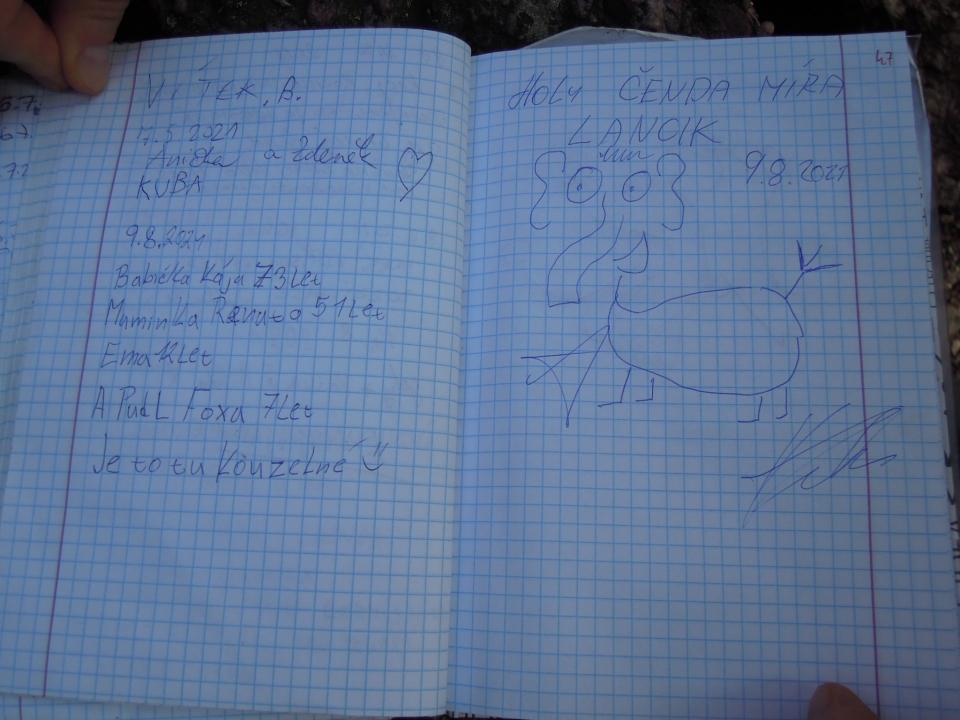 VÍTEK, B.
7.5.2021
Anička a Zdeněk
KUBA
9.8.2021
Babička Kája 73 Let
Maminka Renata 51 Let
Ema Let
A Pudl Foxa 7 Let
Je to tu Kouzelné
47
HOLY ČENDA MÍRA
LANCIK
9.8.2021